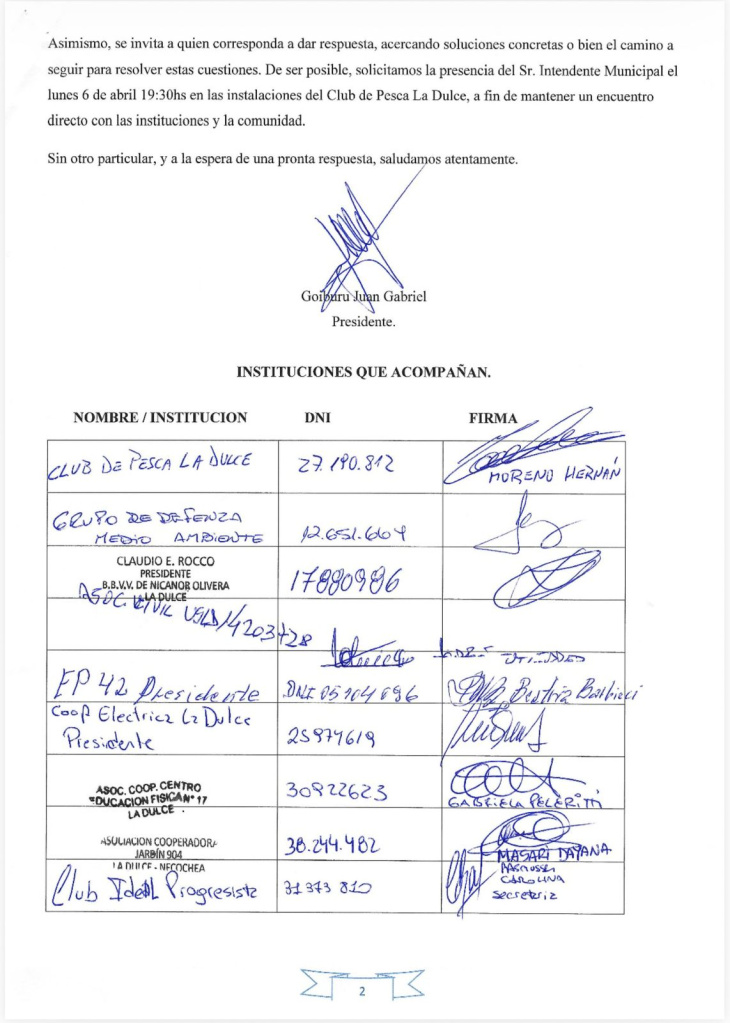 Asimismo, se invita a quien corresponda a dar respuesta, acercando soluciones concretas o bien el camino a
seguir para resolver estas cuestiones. De ser posible, solicitamos la presencia del Sr. Intendente Municipal el
lunes 6 de abril 19:30hs en las instalaciones del Club de Pesca La Dulce, a fin de mantener un encuentro
directo con las instituciones y la comunidad.
Sin otro particular, y a la espera de una pronta respuesta, saludamos atentamente.
Goiburu Juan Gabriel
Presidente.
INSTITUCIONES QUE ACOMPAÑAN.
NOMBRE / INSTITUCION DNI FIRMA
CLUB DE PESCA LA DULCE 27.190.812
MORENO HERNÁN
GRUPO DE DEFENZA
MEDIO AMBIENTE 12.651.664
CLAUDIO E. ROCCO
PRESIDENTE
B.B.V.V. DE NICANOR OLIVERA
LA DULCE
17880986
ASOC. CIVIL
EP 42 Presidente DNI 05104696 Beatriz Barbieri
Coop Electrica La Dulce
Presidente 25974619
ASOC. COOP. CENTRO
EDUCACION FISICA N° 17
LA DULCE
30922623
GABRIELA PELERITTI
ASOCIACION COOPERADORA
JARDÍN 904
LA DULCE - NECOCHEA
38.244.482
MASARI DAYANA
Club Ideal Progresista 31373810
RASMUSSEN
CAROLINA
secretaria
2